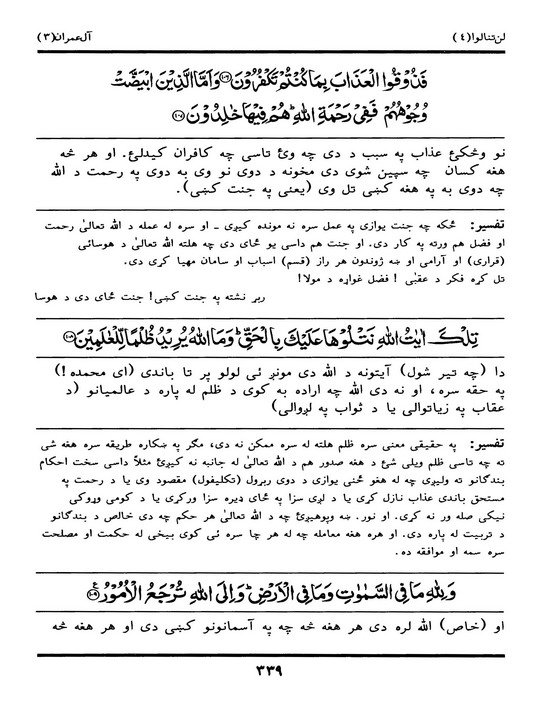 لن تنالوا(٤) آل عمران(٣)
فَذُوْقُوا الْعَذَابَ بِمَا كُنْتُمْ تَكْفُرُوْنَ ۝١٠٦ وَاَمَّا الَّذِيْنَ ابْيَضَّتْ
وُجُوْهُهُمْ فَفِيْ رَحْمَةِ اللّٰهِ ؕ هُمْ فِيْهَا خٰلِدُوْنَ ۝١٠٧
نو وڅکئ عذاب په سبب د دې چه وئ تاسې چه کافران کیدلئ. او هر څه
هغه کسان چه سپین شوی دی مخونه د دوی نو وی به دوی په رحمت د الله
چه دوی به په هغه کښې تل وی (یعنې په جنت کښې).
تفسیر: ځکه چه جنت یوازې په عمل سره نه مونده کیږی ـ او سره له عمله د الله تعالیٰ رحمت
او فضل هم ورته په کار دی. او جنت هم داسې یو ځای دی چه هلته الله تعالیٰ د هوسائی
(قرارۍ) او آرامۍ او ښه ژوندون هر راز (قسم) اسباب او سامان مهیا کړی دی.
تل کړه فکر د عقبیٰ ! فضل غواړه د مولا!
ربړ نشته په جنت کښې! جنت ځای دی د هوسا
تِلْكَ اٰيٰتُ اللّٰهِ نَتْلُوْهَا عَلَيْكَ بِالْحَقِّ ؕ وَمَا اللّٰهُ يُرِيْدُ ظُلْمًا لِّلْعٰلَمِيْنَ ۝١٠٨
دا (چه تیر شول) آیتونه د الله دی مونږ ئې لولو پر تا باندې (ای محمده!)
په حقه سره، او نه دی الله چه اراده به کوی د ظلم له پاره د عالمیانو (د
عقاب په زیاتوالی یا د ثواب په لږوالی)
تفسیر: په حقیقی معنی سره ظلم هلته له سره ممکن نه دی، مګر په ښکاره طریقه سره هغه شی
ته چه تاسې ظلم ویلی شئ د هغه صدور هم د الله تعالیٰ له جانبه نه کیږی مثلاً داسې سخت احکام
بندګانو ته ولیږی چه له هغو ځنې یوازې د دوی ربړول (تکلیفول) مقصود وی یا د رحمت په
مستحق باندې عذاب نازل کړی یا د لږې سزا په ځای ډیره سزا ورکړی یا د کومې وړوکې
نیکۍ صله ور نه کړی. او نور. ښه وپوهیږئ چه د الله تعالیٰ هر حکم چه دی خالص د بندګانو
د تربیت له پاره دی. او هره هغه معامله چه له هر چا سره ئې کوی بیخی له حکمت او مصلحت
سره سمه او موافقه ده.
وَلِلّٰهِ مَا فِي السَّمٰوٰتِ وَمَا فِي الْاَرْضِ ؕ وَاِلَى اللّٰهِ تُرْجَعُ الْاُمُوْرُ ۝١٠٩
او (خاص) الله لره دی هر هغه څه چه په آسمانونو کښې دی او هر هغه څه
٣٣٩